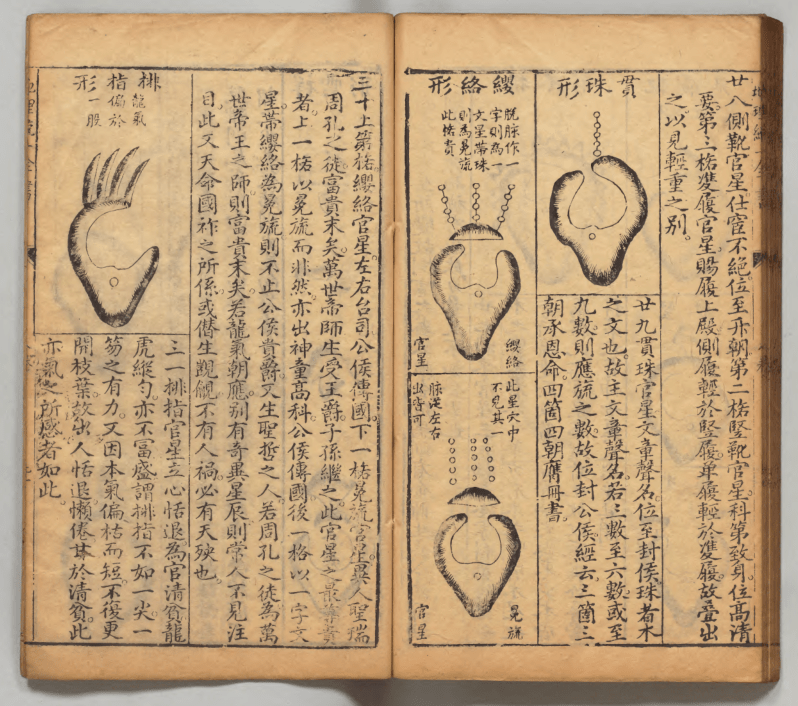 廿八側靴官星仕宦不絕位至升朝第二格竪靴官星科第致身位髙清
要第三格雙履官星賜履上殿側履輕於竪履单履輕於雙履故畳出
之以見輕重之别
貫珠形
廿九貫珠官星文章聲名位至封侯珠者木
之文也故主文章聲名若三數至六數或至
九數則應旒之數故位封公侯經云三箇三
朝承恩命四箇四朝膺冊書
纓絡形
脱脉作一
字則為一
文星帶珠
則為冕旒
此格貴
纓絡
官星
此星穴中
不見其一
脉從左右
出皆可
冕旒
官星
三十上第格纓絡官星左右台司公侯傳國下一格冕旒官星異人聖瑞
周孔之徒富貴末矣萬世帝師生受王爵子孫繼之此官星之最貴
者上一格以冕旒而非然亦出神童高科公侯傳國後一格以一字文
星帶纓絡為冕旒則不止公侯貴爵又生聖哲之人若周孔之徒為萬
世帝王之師則富貴末矣若龍氣朝應别有奇異星辰則常人不見注
目此又天命國祚之所係或僭生覬覦不有人禍必有天殃也
排指形
龍氣
偏於
一股
三一排指官星立心恬退為官清貧龍
虎縱勺亦不富盛謂排指不如一尖一
笏之有力又因本氣偏枯而短不復更
開枝葉故出人恬退懶倦妹於清貧此
亦氣之所感者如此